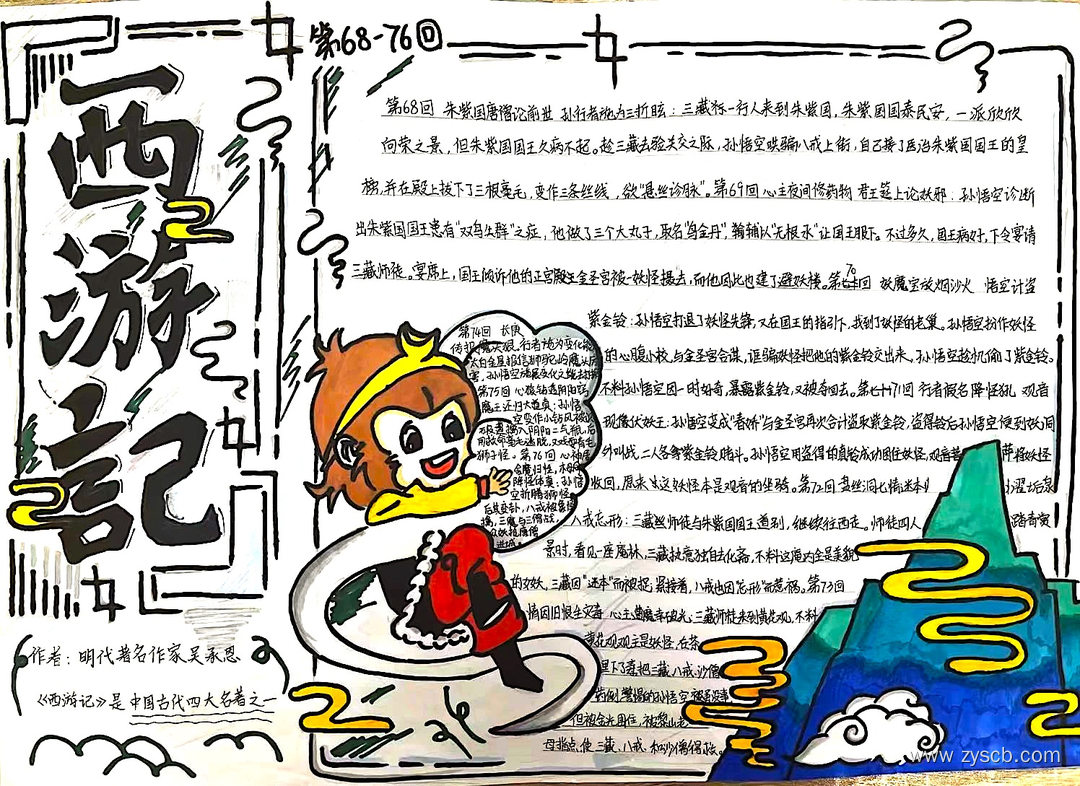 西游記
第68-76回
作者：明代著名作家吴承恩
《西游记》是中国古代四大名著之一
第68回 朱紫国唐僧论前世 孙行者施为三折肱：三藏称一行人来到朱紫国，朱紫国国泰民安，一派欣欣
向荣之景，但朱紫国国王久病不起。趁三藏去验关交之际，孙悟空哄骗八戒上街，自己揭了医治朱紫国国王的皇
榜，并在殿上拔下了三根毫毛，变作三条丝线，欲"悬丝诊脉"。第69回 心主夜间修药物 君王筵上论妖邪：孙悟空诊断
出朱紫国国王患有"双鸟失群"之症，他做了三个大丸子，取名"乌金丹"，辅以"无根水"让国王服下。不过多久，国王病好，下令宴请
三藏师徒。宴席上，国王倾诉他的正宫殿金圣宫被一妖怪摄去，而他因此也建了避妖楼。第70回 妖魔宝放烟沙火 悟空计盗
紫金铃：孙悟空打退了妖怪先锋，又在国王的指引下，找到了妖怪的老巢。孙悟空扮作妖怪
的心腹小校，与金圣宫合谋，诓骗妖怪把他的紫金铃交出来，孙悟空趁机偷了紫金铃。
不料孙悟空因一时好奇，暴露紫金铃，又被夺回去。第71回 行者假名降怪犼 观音
现像伏妖王：孙悟空变成"春娇"与金圣宫再次合计盗取紫金铃，盗得铃后孙悟空便到妖洞
外叫战，二人各拿紫金铃踏斗。孙悟空用盗得的真铃成功困住妖怪，观音菩萨将妖怪
收回，原来生这妖怪本是观音的坐骑。第72回 盘丝洞七情迷本 濯垢泉
八戒忘形：三藏师徒与朱紫国国王道别，继续往西走。师徒四人 路奇寞
景时，看见一座庵林，三藏执意独自去化斋，不料这庵内全是美貌
的女妖，三藏因"迷本"而被捉，紧接着，八戒也因忘形而惹祸。第73回
情因旧恨生灾毒 心主遭魔幸破光：三藏师徒来到黄花观，不料
黄花观观主是妖怪，在茶
里下了毒把三藏、八戒、沙僧
药倒，警惕的孙悟空
但被金光困住，被黎山老
母指点，使三藏、八戒、和沙僧得救。
第74回 长庚
传报魔头狠 行者施为变化能
第75回 心猿钻透阴阳窍
魔王还归大道真：孙悟
空变作小钻风被
狮子怪。第76回 心神居
舍魔归性，木母同
降怪体真：孙悟
空折腾狮怪
www.zyscb.com